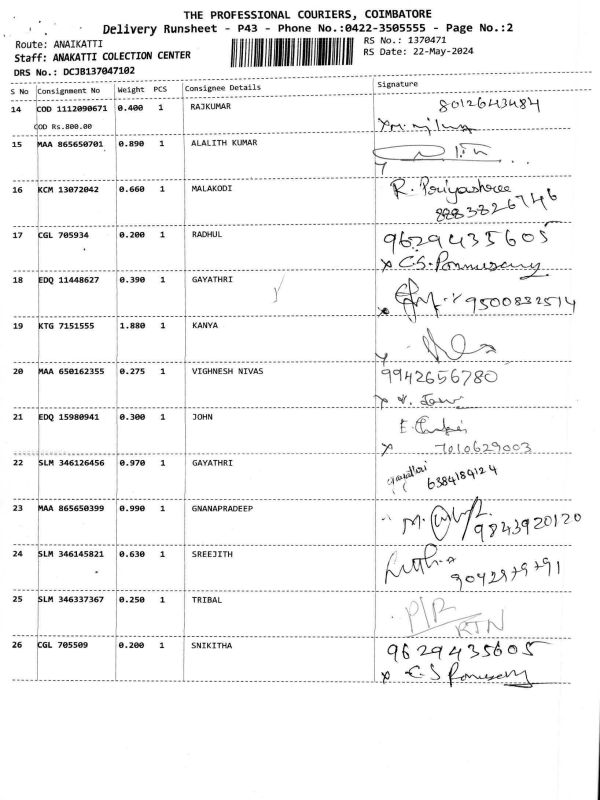 THE PROFESSIONAL COURIERS, COIMBATORE
Delivery Runsheet - P43 - Phone No.:0422-3505555 - Page No.:2
Route: ANAIKATTI
RS No.: 1370471
Staff: ANAKATTI COLECTION CENTER
RS Date: 22-May-2024
DRS No.: DCJB137047102
S No Consignment No Weight PCS Consignee Details Signature
14 COD 1112090671 0.400 1 RAJKUMAR 8012643484
COD Rs.800.00
15 MAA 865650701 0.890 1 ALALITH KUMAR
16 KCM 13072042 0.660 1 MALAKODI R. Priyashree
8883826746
17 CGL 705934 0.200 1 RADHUL 9629435605
x C.S.
18 EDQ 11448627 0.390 1 GAYATHRI 9500832514
19 KTG 7151555 1.880 1 KANYA
20 MAA 650162355 0.275 1 VIGHNESH NIVAS 9942656780
21 EDQ 15980941 0.300 1 JOHN E.
x 7010629003
22 SLM 346126456 0.970 1 GAYATHRI gayathri
6384184124
23 MAA 865650399 0.990 1 GNANAPRADEEP M.
9843920120
24 SLM 346145821 0.630 1 SREEJITH
9042979791
25 SLM 346337367 0.250 1 TRIBAL P/R
RTN
26 CGL 705509 0.200 1 SNIKITHA 9629435605
x C.S